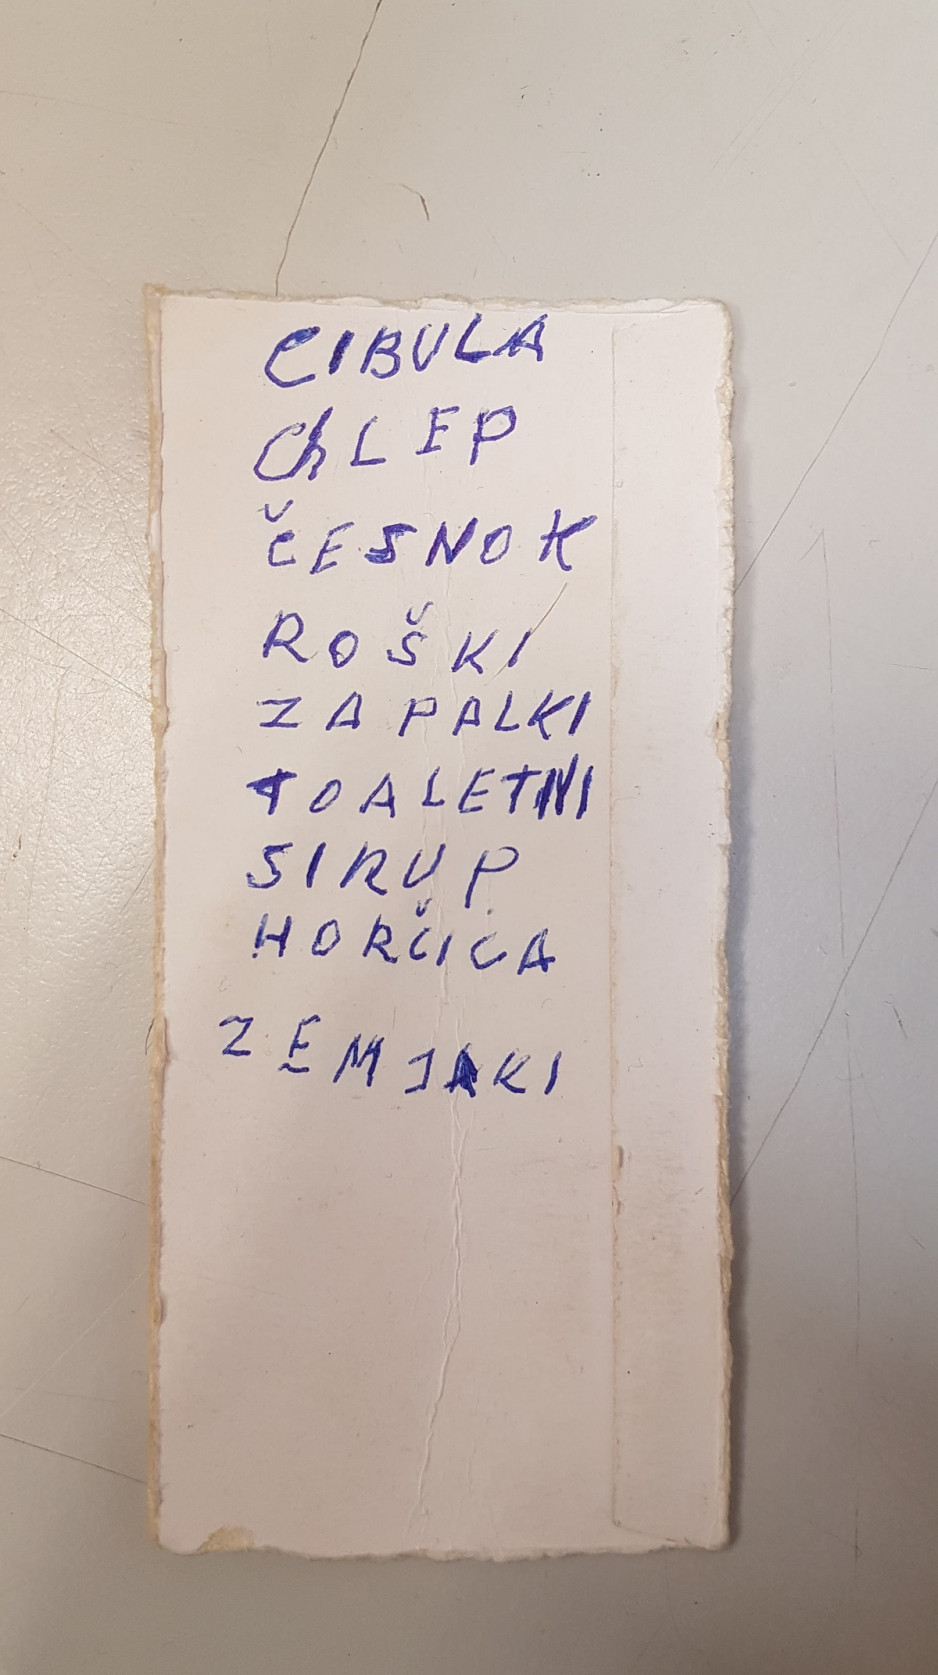 CIBULA
ChLEP
ČESNOK
ROŠKI
ZAPALKI
TOALETNI
SIRUP
HORČICA
ZEMJAKI